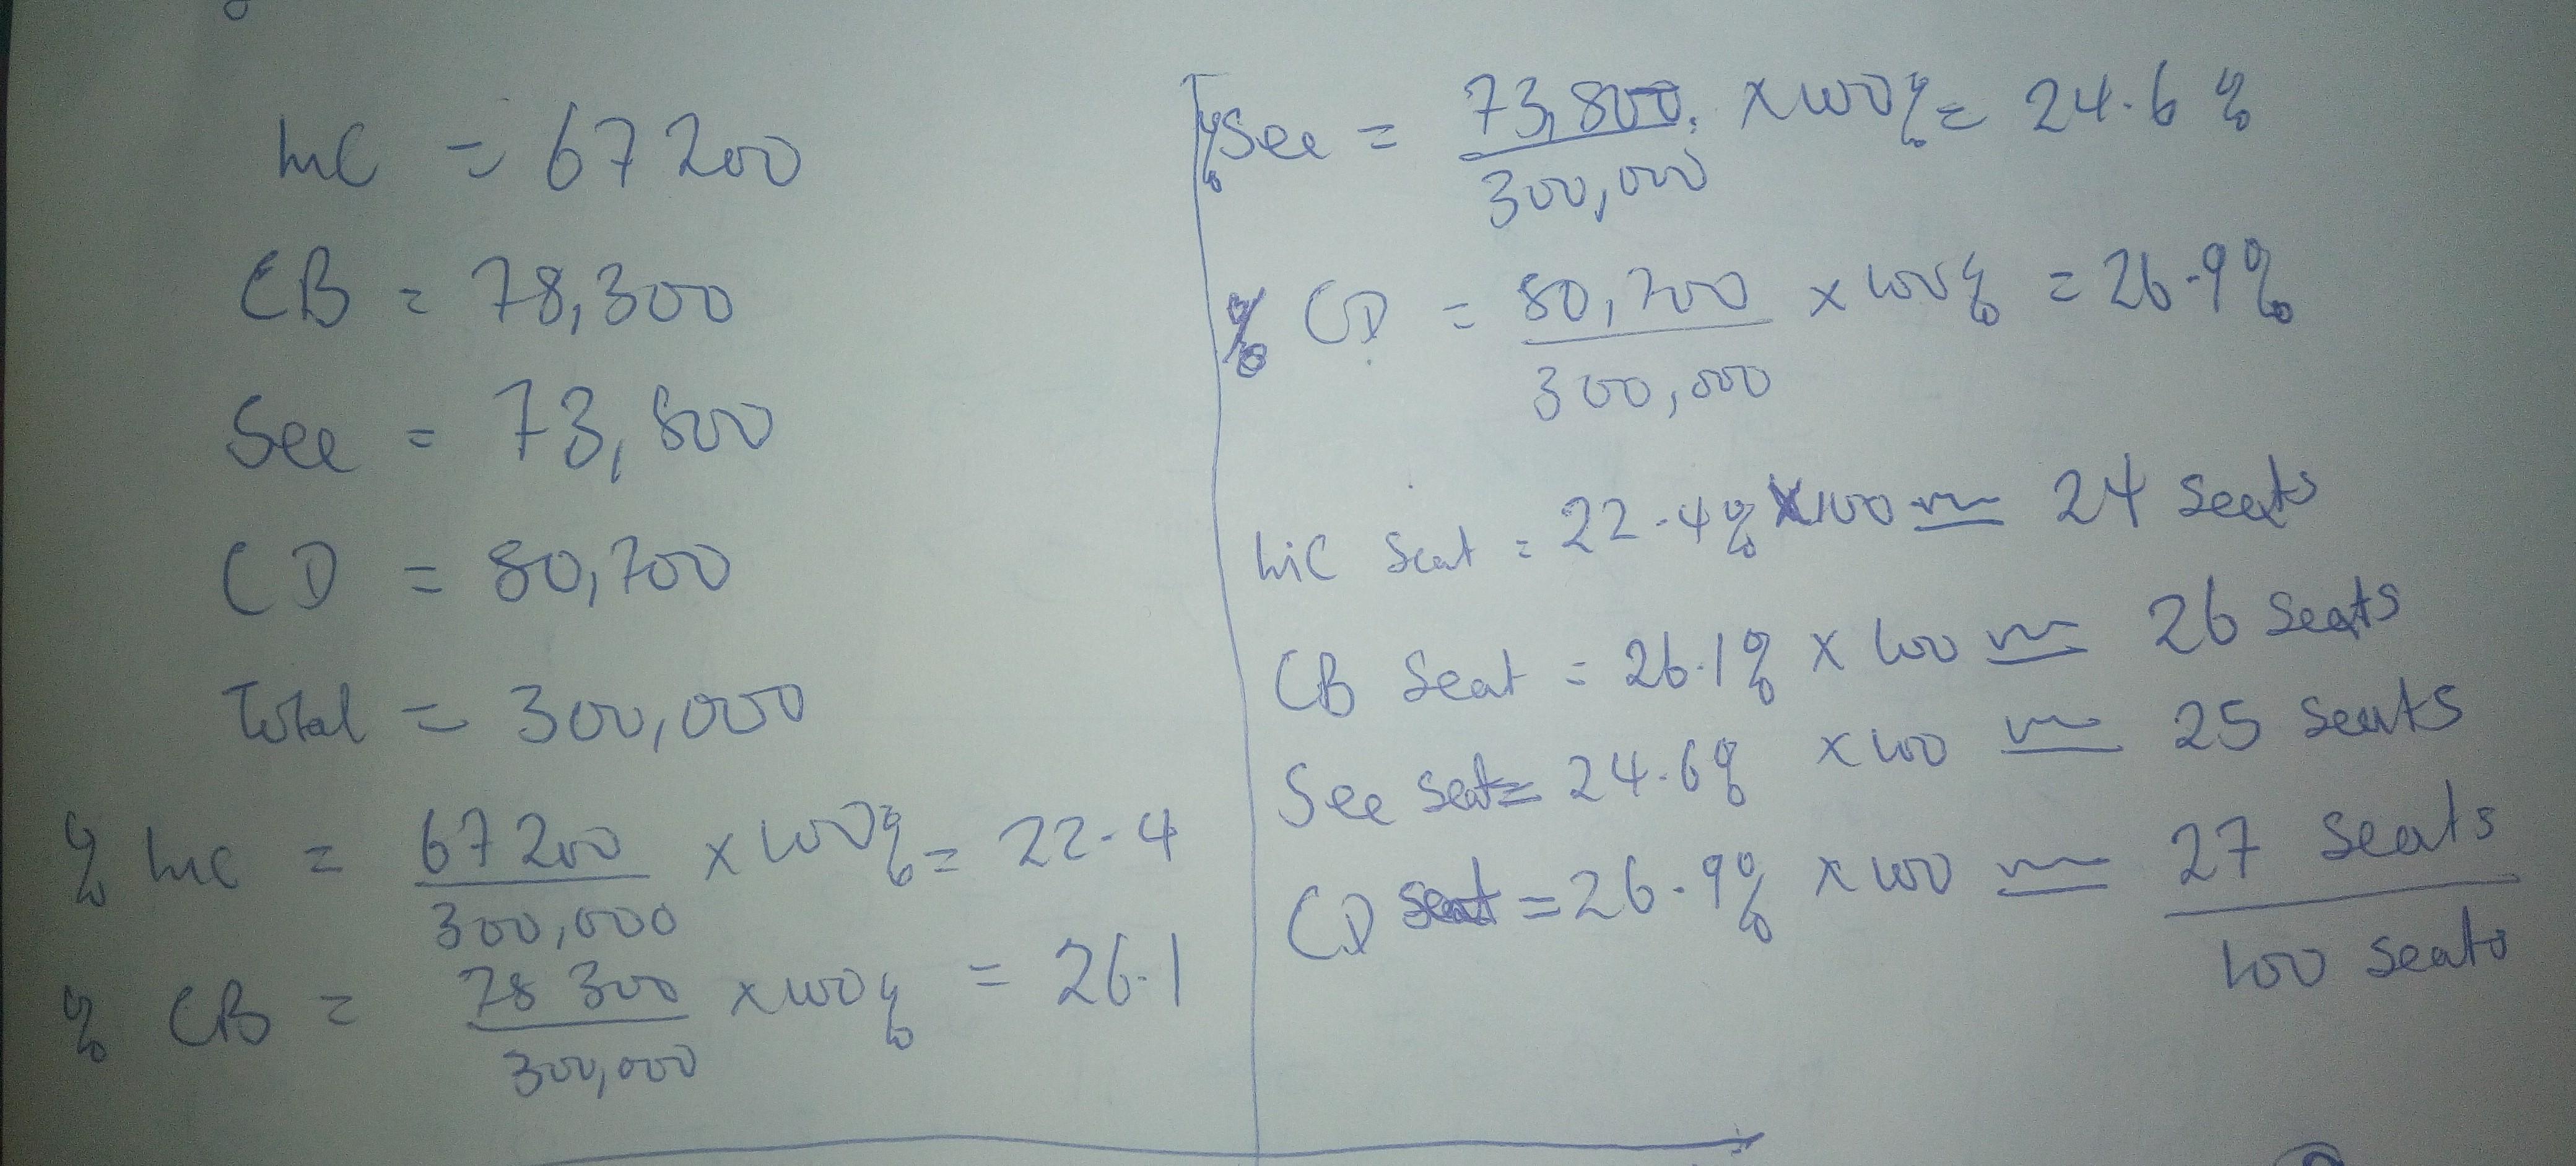 LUC = 67200
CB = 78,300
See = 73,800
CD = 80,700
Total = 300,000
% LUC = 67200 / 300,000 x 100% = 22.4
% CB = 78 300 / 300,000 x 100% = 26.1
% See = 73,800 / 300,000 x 100% = 24.6 %
% CD = 80,700 / 300,000 x 100% = 26.9%
LUC Seat = 22.4% x 100 ≃ 24 seats
CB Seat = 26.1% x 100 ≃ 26 seats
See seat = 24.6% x 100 ≃ 25 seats
CD seat = 26.9% x 100 ≃ 27 seats
100 seats